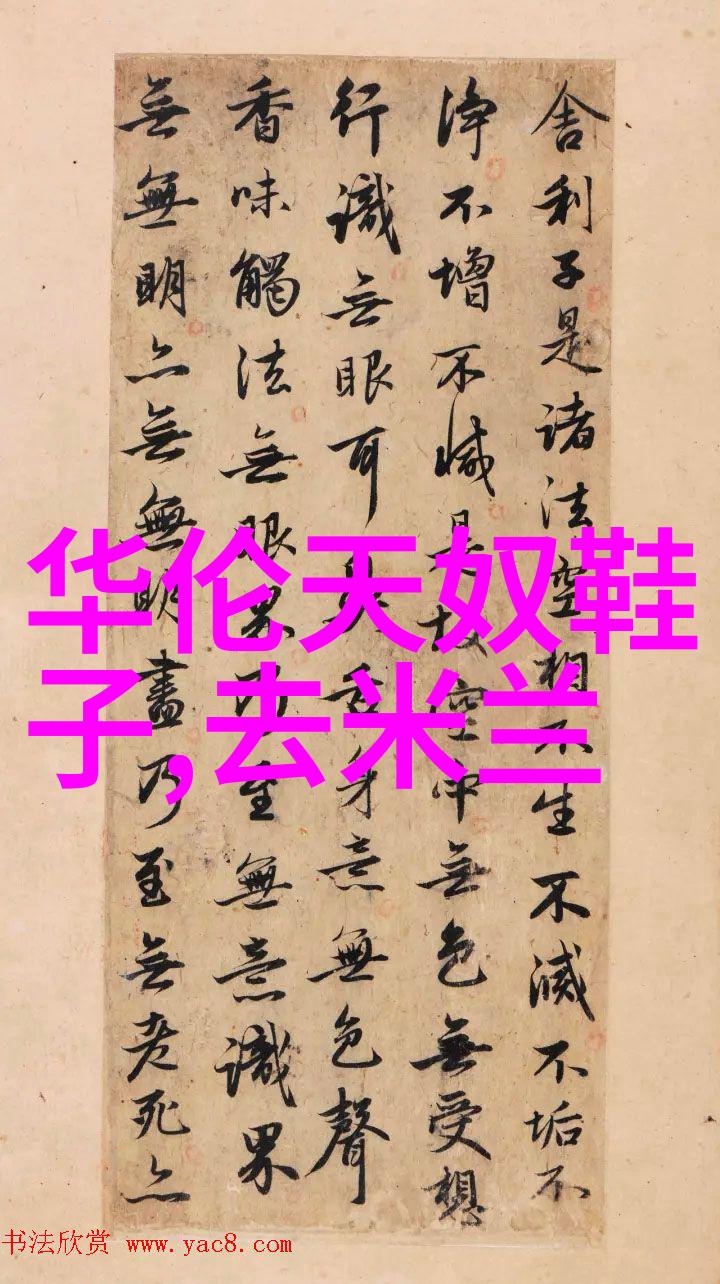 舍利子是諸法空相不生不滅不垢不
淨不增不減是故空中無色無受想
行識無眼耳鼻舌身意無色聲
香味觸法無眼界乃至無意識界
無無明亦無無明盡乃至無老死亦
华伦天奴鞋
子,去米兰
书法欣赏 www.yac8.com